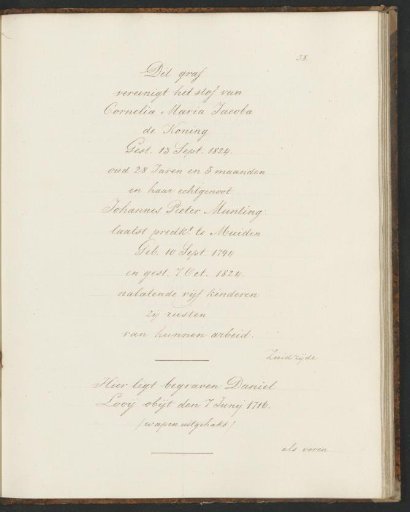 38
Dit graf
vereenigt het stof van
Cornelia Maria Jacoba
de Koning
Gest. 13 Sept. 1824
oud 28 Jaren en 5 maanden
en haar echtgenoot
Johannes Pieter Munting
laatst predkt. te Muiden
Geb. 10 Sept. 1790
en gest. 7 Oct. 1824
nalatende vijf kinderen
zij rusten
van hunnen arbeid.
Zuidzijde
Hier legt begraven Daniel
Looij obijt den 7 Junij 1716.
(wapen uitgehakt)
als voren